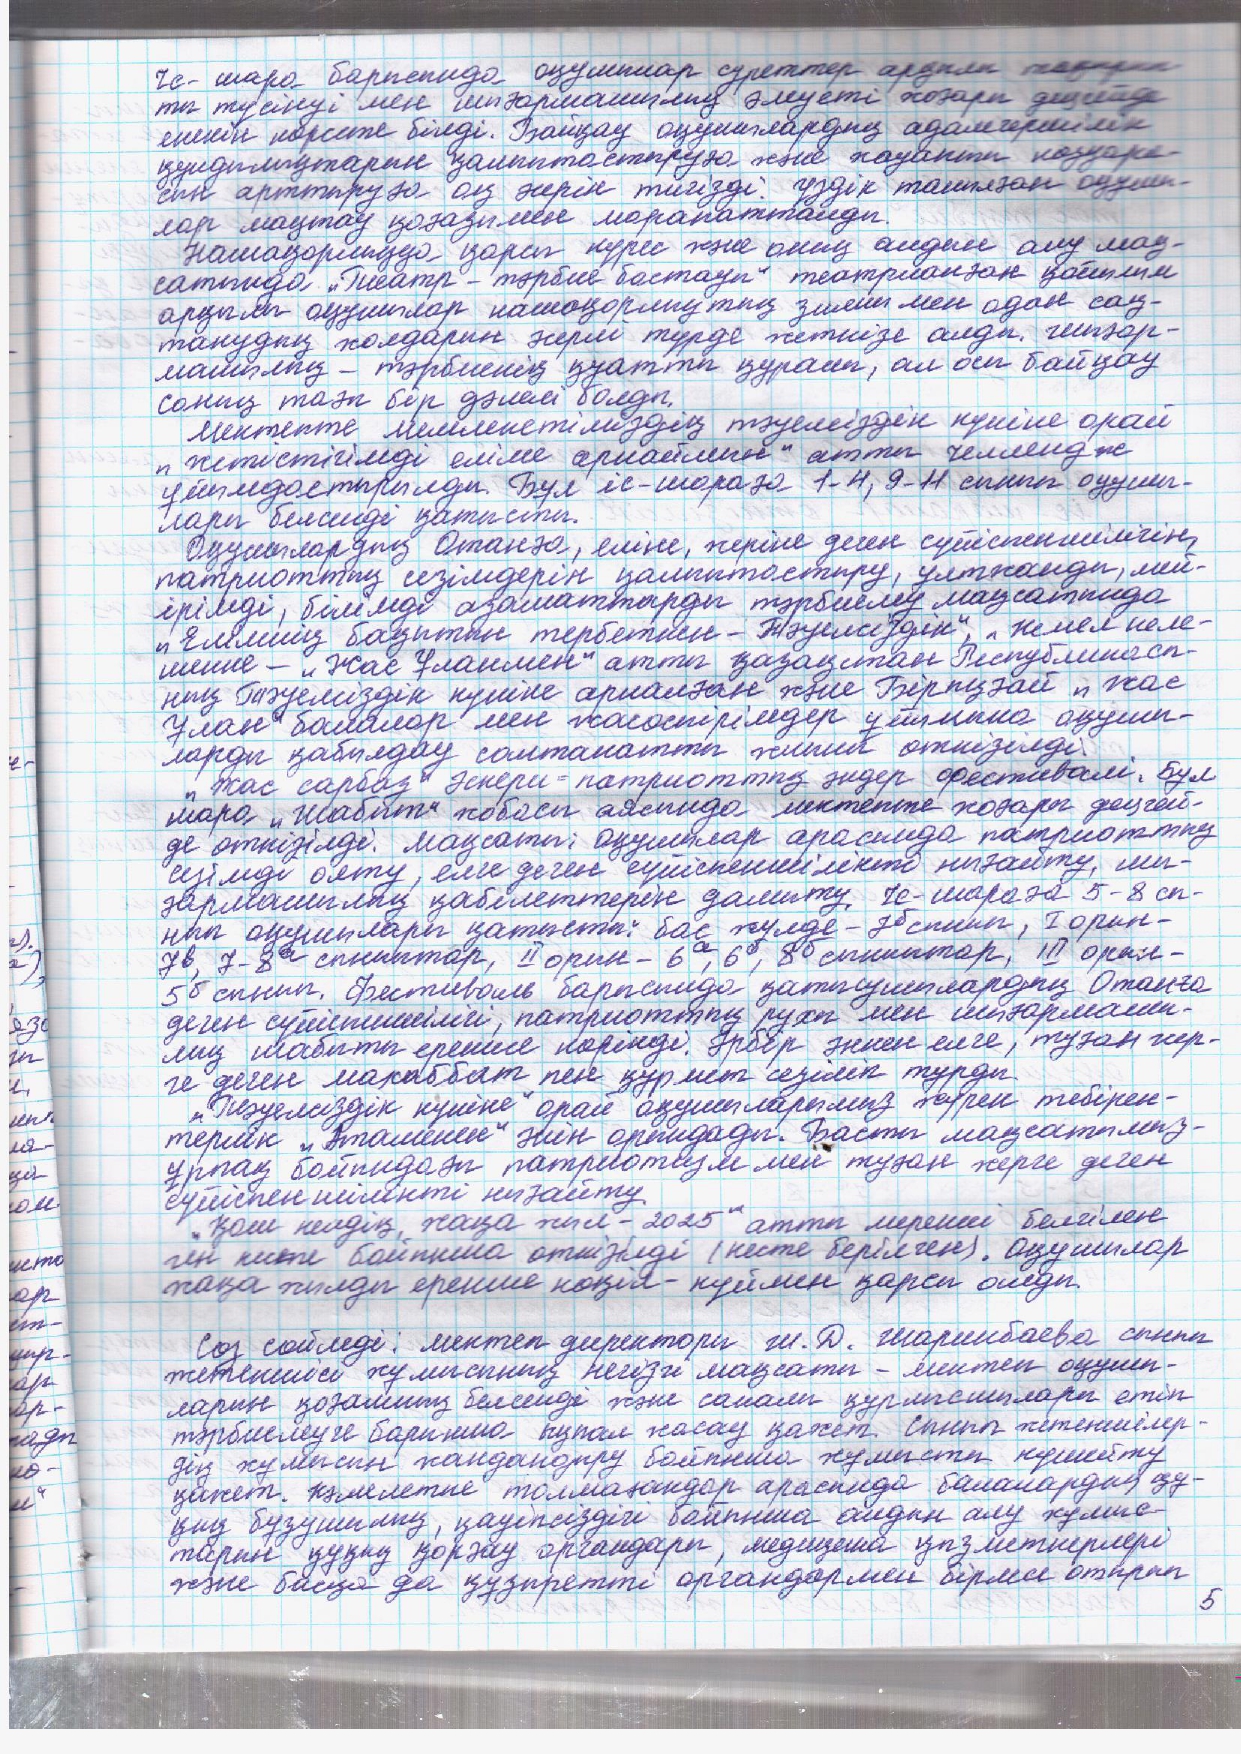 Іс-шара барысында оқушылар суреттер арқылы
ты түсінуі мен шығармашылық әлеуеті жоғары деңгейде
екенін көрсете білді. Байқау оқушылардың адамгершілік
құндылықтарын қалыптастыруға және жауапты көзқара-
сын арттыруға оң әсерін тигізді. Үздік танылған оқушы-
лар мақтау қағазымен марапатталды.
Нашақорлыққа қарсы күрес және оның алдын алу мақ-
сатында „Театр - тәрбие бастауы" театрланған қойылым
арқылы оқушылар нашақорлықтың зияны мен одан сақ-
танудың жолдарын әсерлі түрде жеткізе алды. Шығар-
машылық - тәрбиенің қуатты құралы, ал осы байқау
соның тағы бір дәлелі болды.
Мектепте мемлекетіміздің тәуелсіздік күніне орай
„Жетістігімді еліме арнаймын" атты челлендж
ұйымдастырылды. Бұл іс-шараға 1-4, 9-11 сынып оқушы-
лары белсенді қатысты.
Оқушылардың Отанға, еліне, жеріне деген сүйіспеншілігін,
патриоттық сезімдерін қалыптастыру, ұлтжанды, мей-
ірімді, білімді азаматтарды тәрбиелеу мақсатында
„Елімнің бақытын тербеткен - Тәуелсіздік", „Кемел келе-
шекке - „Жас Ұланмен" атты Қазақстан Республикасы-
ның Тәуелсіздік күніне арналған және Бірыңғай „Жас
Ұлан" балалар мен жасөспірімдер ұйымына оқушы-
ларды қабылдау салтанатты жиыны өткізілді
„Жас сарбаз" әскери-патриоттық әндер фестивалі. Бұл
шара „Шабыт" жобасы аясында мектепте жоғары деңгей-
де өткізілді. Мақсаты: оқушылар арасында патриоттық
сезімді ояту, елге деген сүйіспеншілікті нығайту, шы-
ғармашылық қабілеттерін дамыту. Іс-шараға 5-8 сы-
нып оқушылары қатысты: бас жүлде - 7б сынып, I орын-
7в, 7-8а сыныптар, II орын - 6а, 6б, 8б сыныптар, III орын-
5б сынып. Фестиваль барысында қатысушылардың Отанға
деген сүйіспеншілігі, патриоттық рухы мен шығармашы-
лық шабыты ерекше көрінді. Әрбір әннен елге, туған жер-
ге деген махаббат пен құрмет сезіліп тұрды.
„Тәуелсіздік күніне" орай оқушыларымыз жүрек тебірен-
терлік „Атамекен" әнін орындады. Басты мақсатымыз-
ұрпақ бойындағы патриотизм мен туған жерге деген
сүйіспеншілікті нығайту.
„Қош келдің, жаңа жыл - 2025" атты мерекесі белгілен
ген кесте бойынша өткізілді (кесте берілген). Оқушылар
жаңа жылды ерекше көңіл-күймен қарсы алды.
Сөз сөйледі: мектеп директоры Ш.Д. Шаринбаева сынып
жетекшісі жұмысының негізгі мақсаты - мектеп оқушы-
ларын қоғамның белсенді және саналы құрылысшылары етіп
тәрбиелеуге барынша ықпал жасау қажет. Сынып жетекшілер-
дің жұмысын жандандыру бойынша жұмысты күшейту
қажет. Кәмелетке толмағандар арасында балалардың құ-
қық бұзушылық, қауіпсіздігі бойынша алдын алу жұмыс-
тарын құқық қорғау органдары, медицина қызметкерлері
және басқа да құзыретті органдармен бірлесе отырып
5